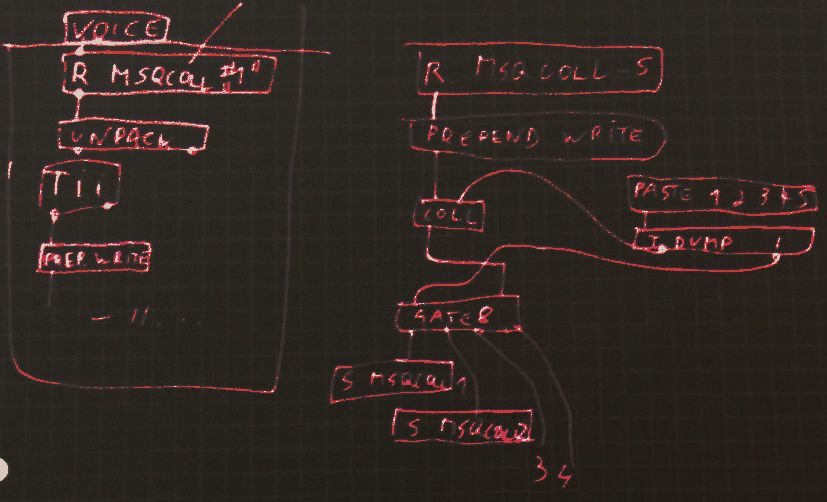 VOICE
R MSQCOLL "1"
UNPACK
T i i
PREP. WRITE
- 11 . . .
R MSQCOLL-S
PREPEND WRITE
COLL
PASTE 1 2 3 4 5
T DUMP i
GATE 8
S MSQCOLL1
S MSQCOLL2
3 4